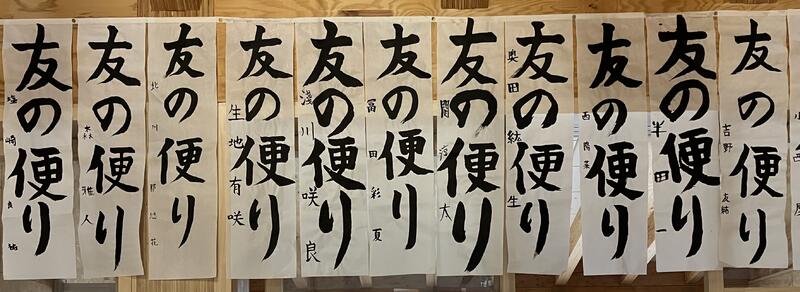 小西
友の便り
吉野友
友の便り
半田一
友の便り
西
友の便り
奥田紘生
友の便り
太
友の便り
冨田彩夏
友の便り
淺川咲良
友の便り
生地有咲
友の便り
北川花
友の便り
森雅人
友の便り
塩崎良